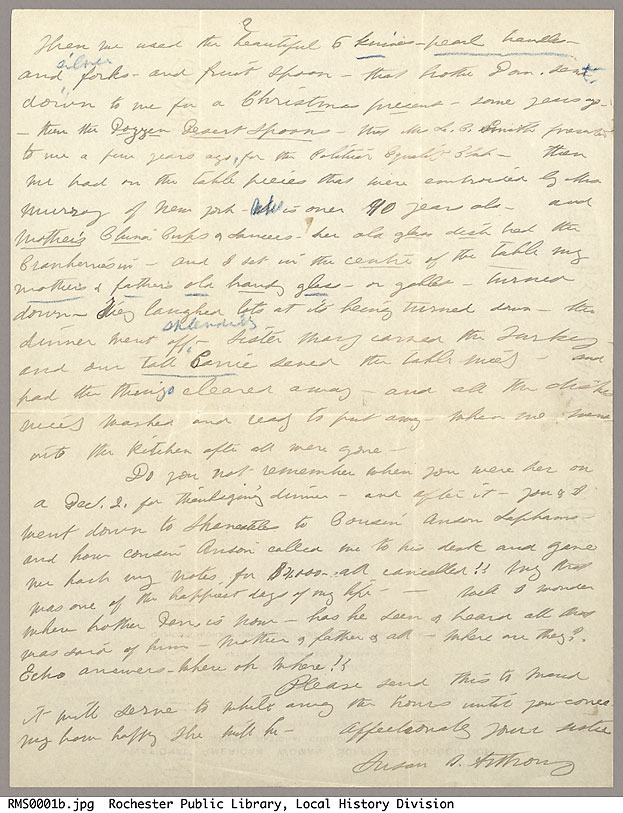 ?
Then we used the beautiful 6 knives - pearl handle -
silver
and forks - and fruit spoon - that brother Dan. sent
down to me for a Christmas present - some years ago -
- then the Dozzen Desert Spoons - that Mr L. C. Smith presented
to me a few years ago, for the Political Equality Club - then
we had on the table pieces that were embroided by Mrs
Murray of New York who is over 90 years old - and
Mother's China Cups & Saucers - her old glass dish had the
Cranberries in - and I set in the centre of the table my
mother's & father's old brandy glass - or goblet - turned
down - They laughed lots at its being turned down - the
splendidly
dinner went off, - Sister Mary carved the Turkey -
and our tall Carrie served the table nicely - and
had the things cleared away and all the dishes
nicely washed and ready to put away - when we went
into the kitchen after all were gone -
Do you not remember when you were here on
a Dec. 2. for thanksgiving dinner - and after it - you & I
went down to to Cousin Anson Laphams -
and how cousin Anson called me to his desk and gave
me back my notes, for $4,000 - all cancelled!! My that
was one of the happiest days of my life - - Well I wonder
where brother Dan, is now - has he seen & heard all that
was said of him - Mother & father & all - Where are they?.
Echo answers - Where oh Where!!
Please send this to Maud
it will serve to while away the hours until you come
my how happy she will be - Affectionately your sister
Susan B. Anthony
NATIONAL AMERICAN WOMAN SUFFRAGE ASSOCIATION
RMS0001b.jpg Rochester Public Library, Local History Division